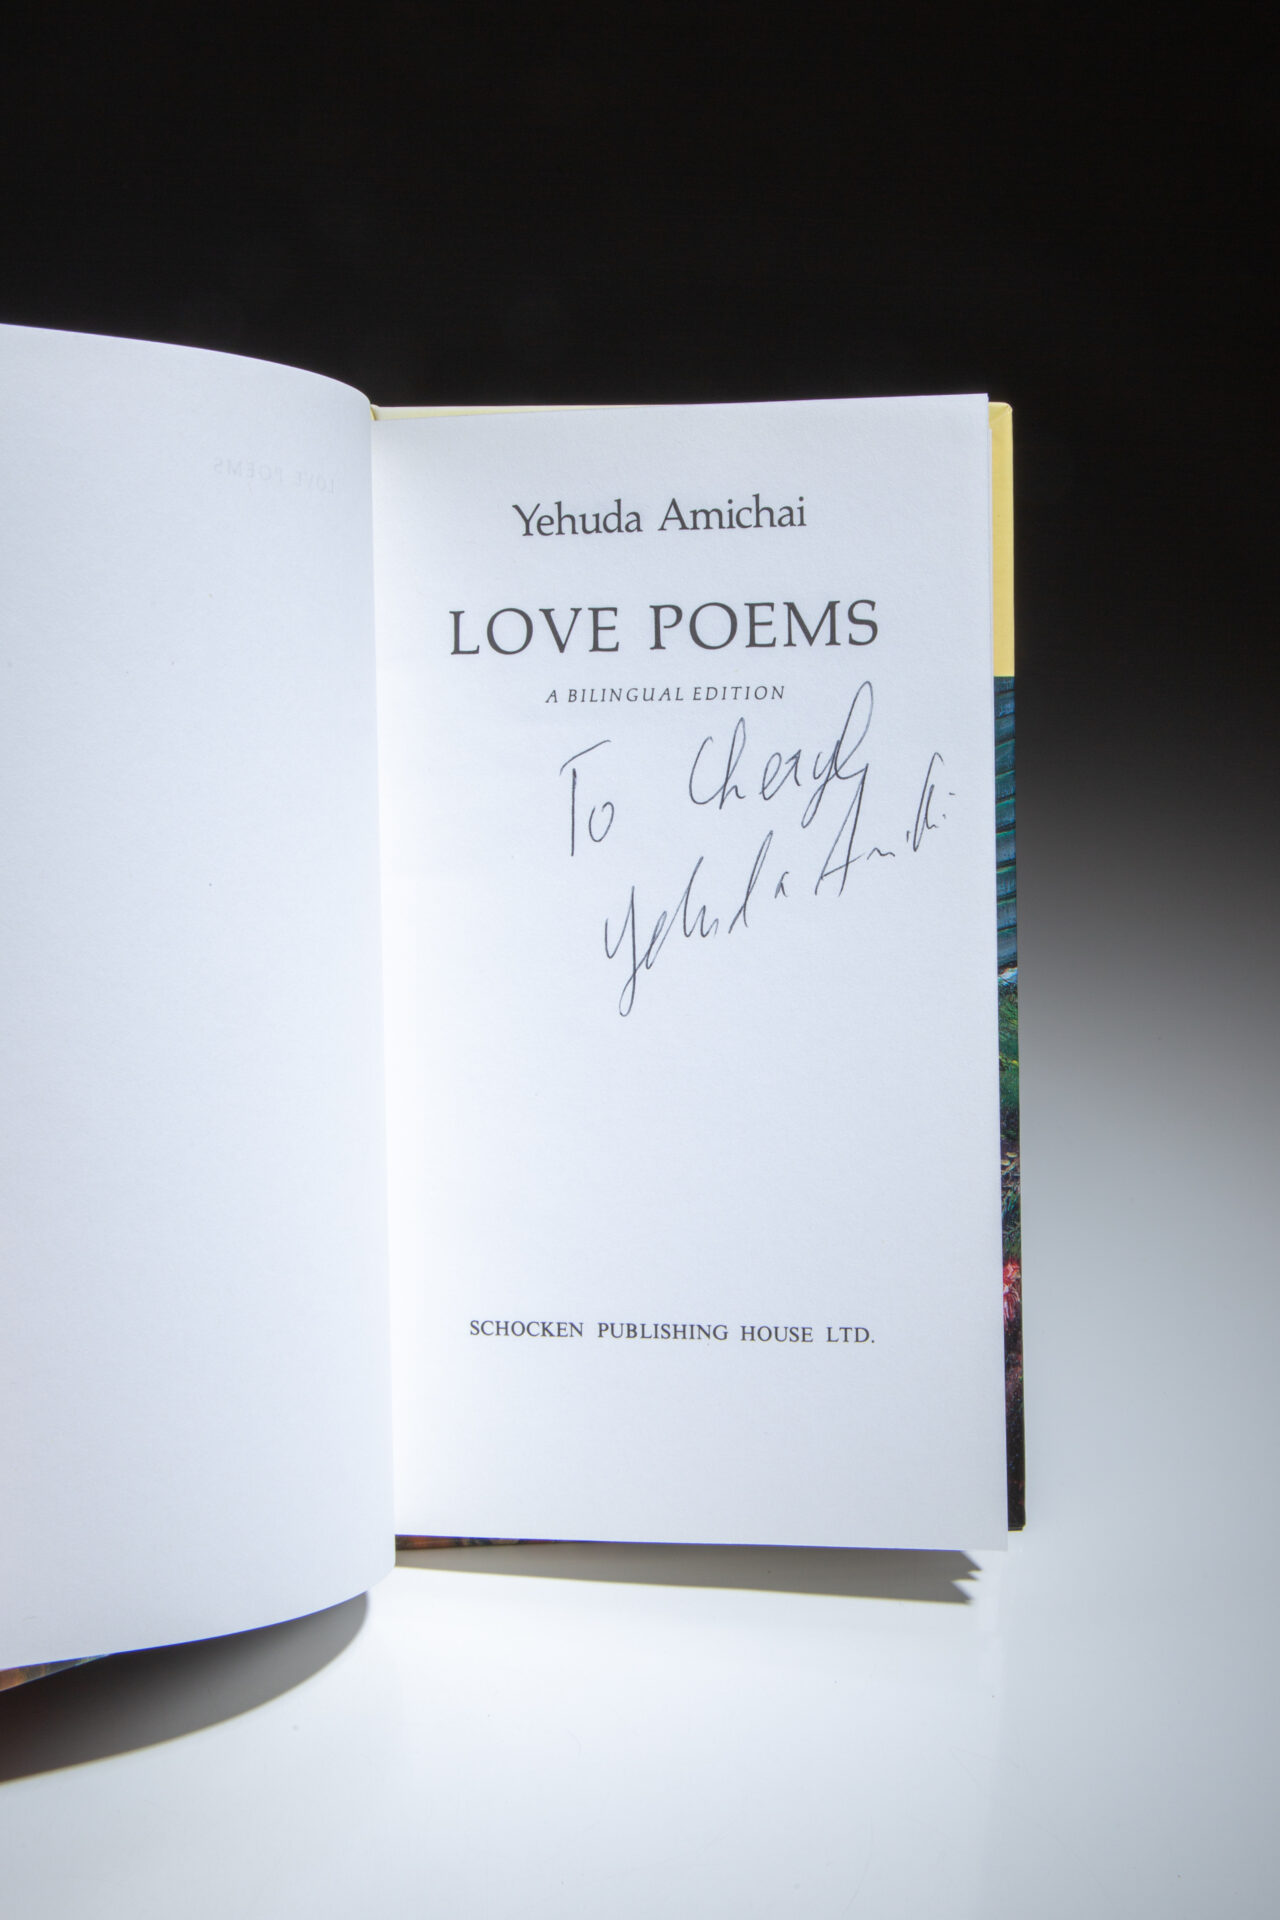 LOVE POEMS
Yehuda Amichai
LOVE POEMS
A BILINGUAL EDITION
To Cheryl
Yehuda Amichai
SCHOCKEN PUBLISHING HOUSE LTD.